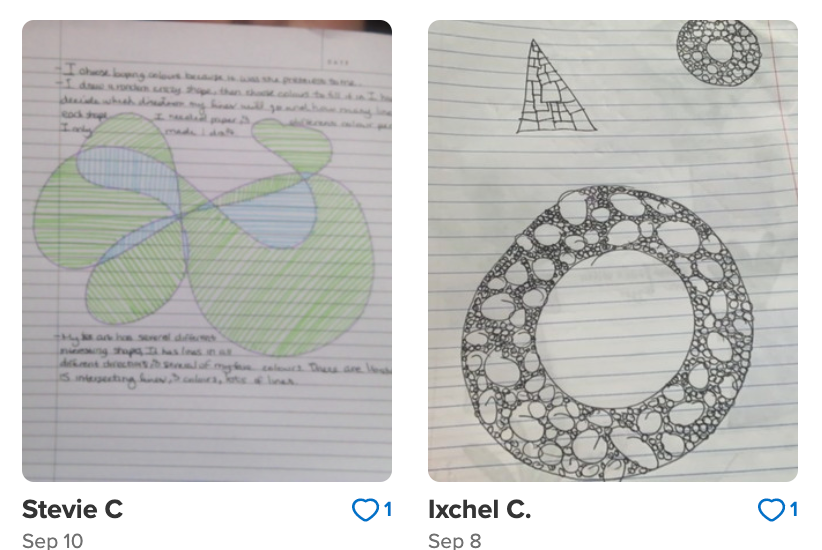 DATE
- I choose
colours because
was the prettiest to me.
- I draw a random
shape, then choose colours to fill it in I
decide which direction my lines will go and how many lines
each shape I needed paper,
different colour
I only made 1 draft.
- My
art has several different
interesting shapes, It has lines in all
different directions,
several of my fave colours. There are
intersecting lines,
colours, lots of lines.
Stevie C
1
Sep 10
Ixchel C.
1
Sep 8